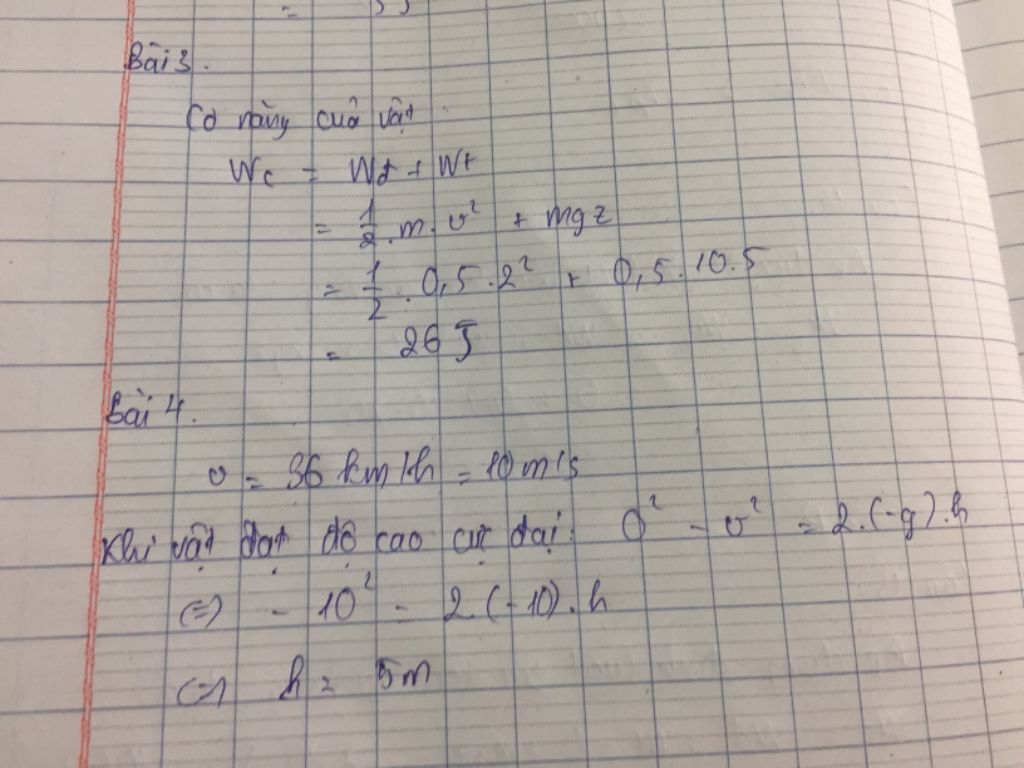 Bài 3.
Cơ năng của vật
Wc = Wđ + Wt
= 1/2 . m . v² + mgz
= 1/2 . 0,5 . 2² + 0,5 . 10 . 5
= 26 J
Bài 4.
v = 36 km/h = 10 m/s
Khi vật đạt độ cao cực đại: 0² - v² = 2.(-g).h
<=> - 10² = 2.(-10).h
<=> h = 5m